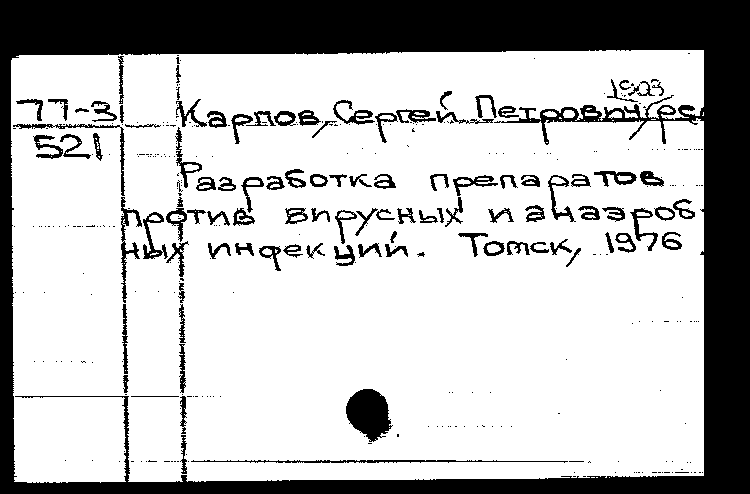 1903
77-3 Карпов, Сергей Петрович, ред
521
Разработка препаратов
против вирусных и анаэроб-
ных инфекций. Томск, 1976.